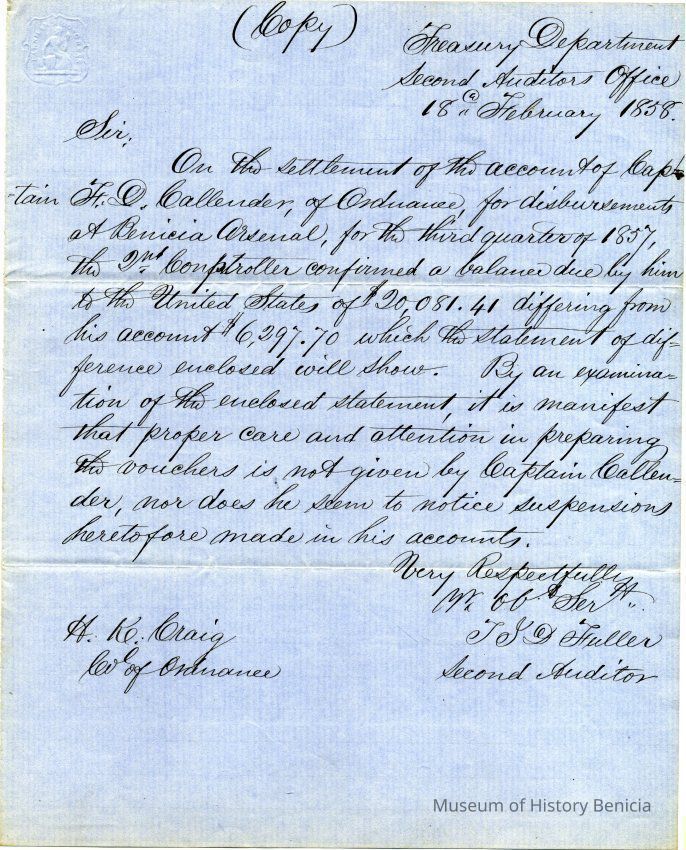 (Copy)
Treasury Department
Second Auditors Office
18th February 1858.
Sir,
On the settlement of the account of Cap-
-tain F. D. Callender, of Ordnance, for disbursements
at Benicia Arsenal, for the third quarter of 1857,
the 2nd Comptroller confirmed a balance due by him
to the United States of $20,081.41 differing from
his account $6,297.70 which the statement of dif-
ference enclosed will show. By an examina-
tion of the enclosed statement, it is manifest
that proper care and attention in preparing
the vouchers is not given by Captain Callen-
der, nor does he seem to notice suspensions
heretofore made in his accounts.
Very Respectfully
Obt Servt.
T J D Fuller
Second Auditor
H. K. Craig
Col of Ordnance
Museum of History Benicia